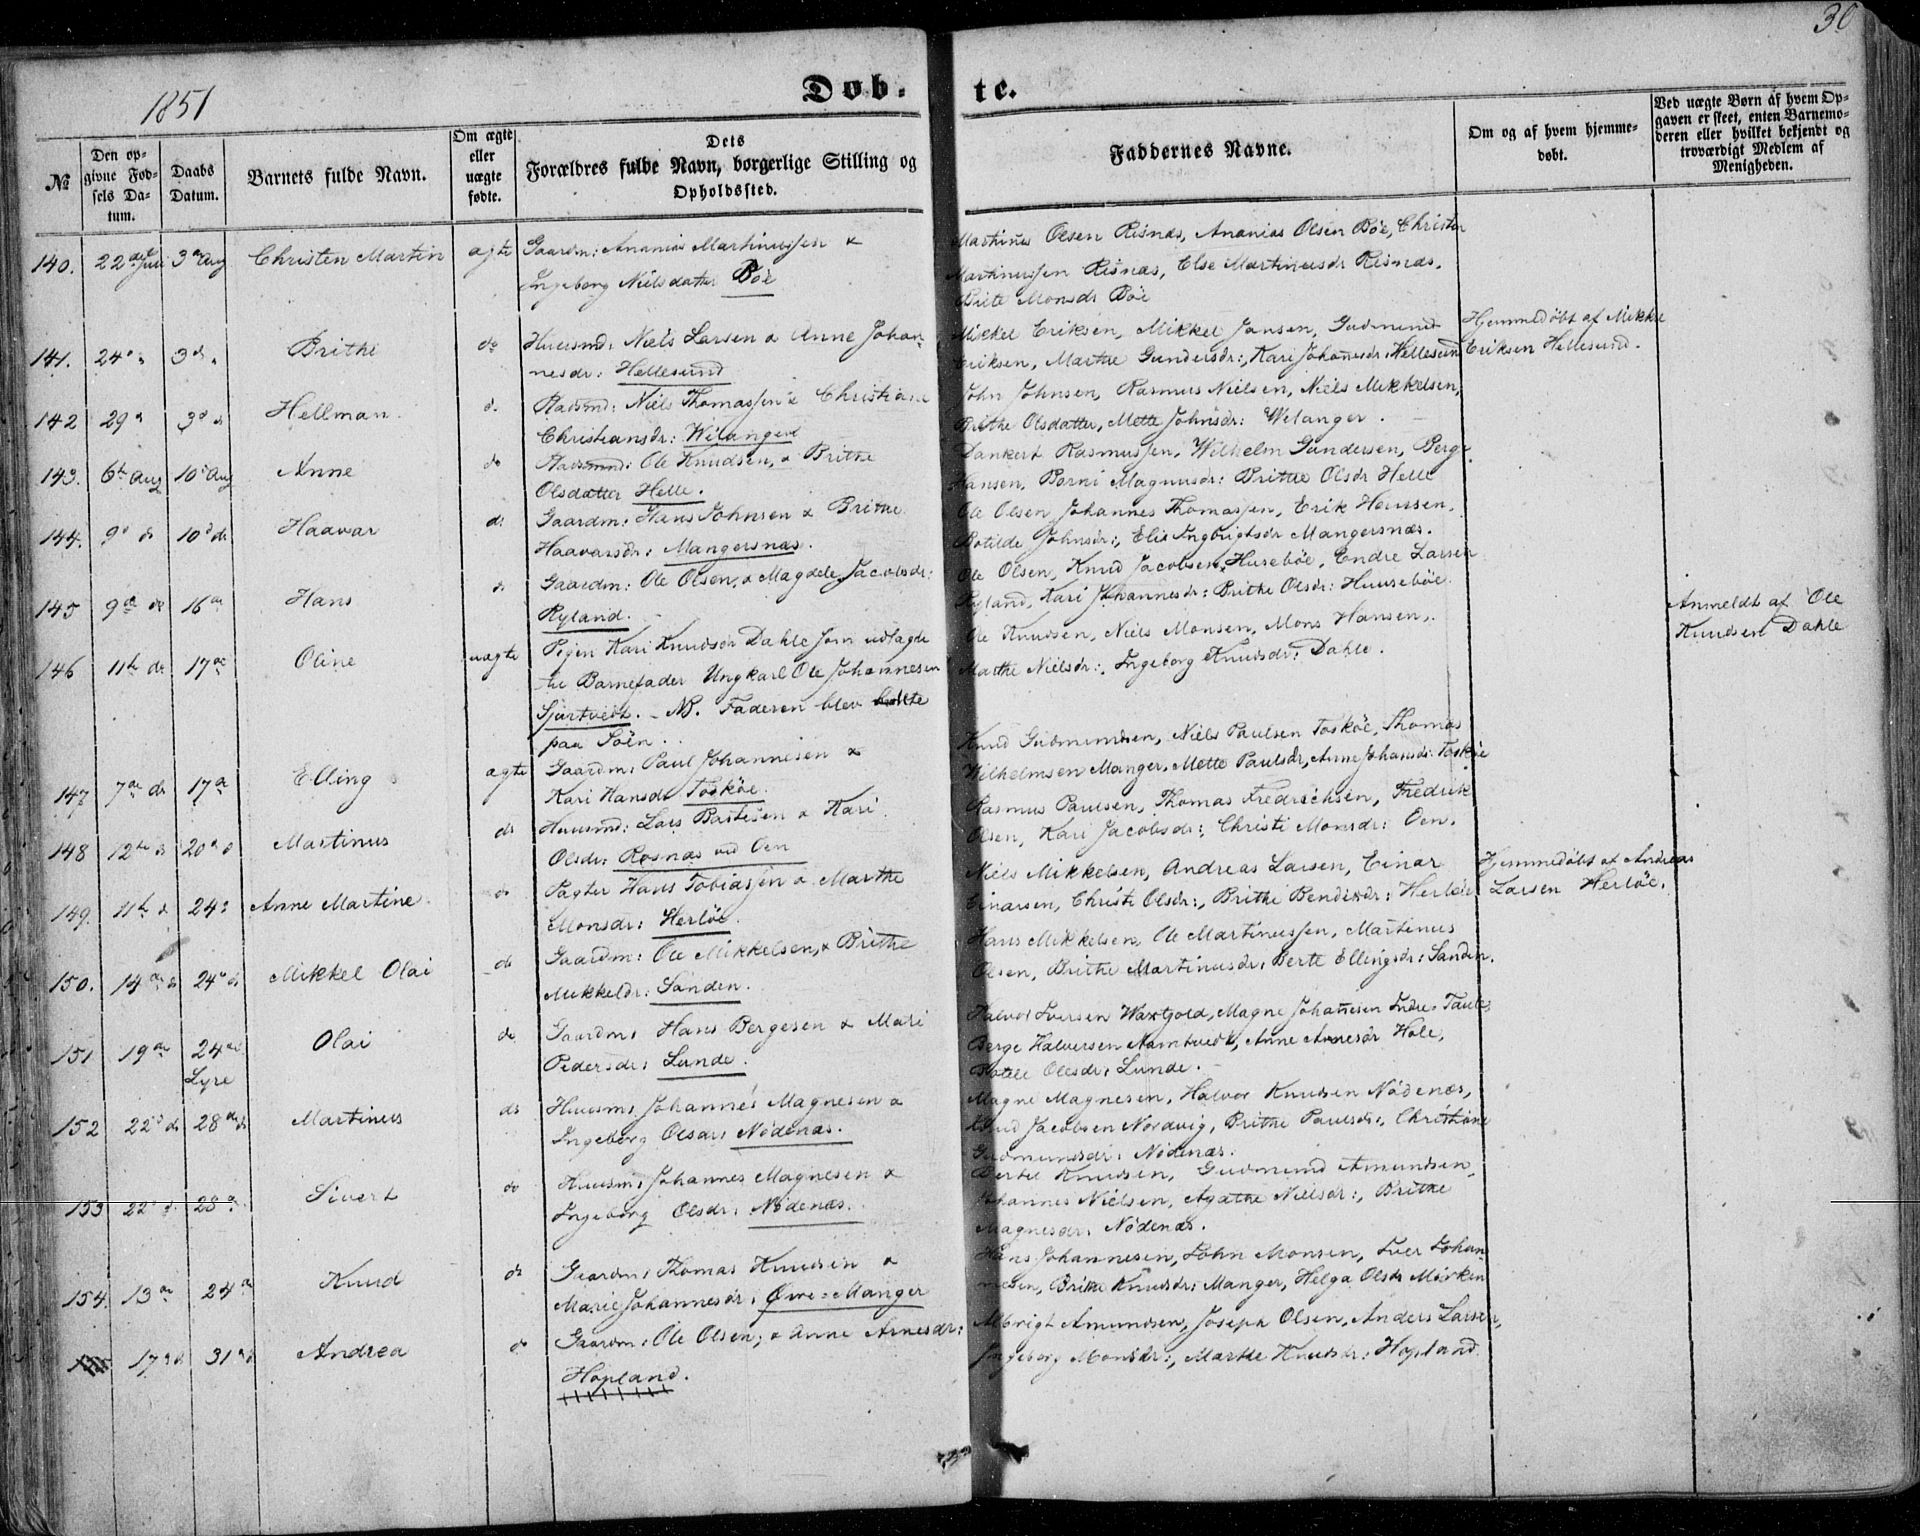 1851
30
Døb- te.
№
Den opgivne Fødsels Datum.
Daabs Datum.
Barnets fulde Navn.
Om ægte eller uægte fødte.
Dets Forældres fulde Navn, borgerlige Stilling og Opholdssted.
Faddernes Navne.
Om og af hvem hjemmedøbt.
Ved uægte Børn af hvem Opgaven er skeet, enten Barnemoderen eller hvilket bekjendt og troværdigt Medlem af Menigheden.
140. 22de Juli 3de Aug Christen Martin ægte Gaardm: Ananias Martinussen &
Ingeborg Nielsdatter Bøe
Martines Olsen Risnæs, Ananias Olsen Bøe, Christen
Martinussen Risnæs, Else Martinusdr Risnæs.
Brite Monsdr Bøe
141. 24de 3de Brithe do Huusmd: Niels Larsen & Anne Johan-
nesdr: Hellesund
Mickel Eriksen, Mikkel Jansen, Gudmund
Eriksen, Marthe Gundersdr:, Kari Johansdr: Hellesund
Hjemmedøbt af Mikkel
Eriksen Hellesund.
142 29 3d d Hellman d. Stadsmd: Niels Thomassen & Christiane
Christiansdr: Wilanger
John Johnsen, Rasmus Nielsen, Niels Mikkelsen,
Brithe Olsdatter, Mette Johnsdr: Welanger.
143. 6te Aug 10de Aug Anne do Stadsmd: Ole Knudsen, & Brithe
Olsdatter Helle.
Dankert Rasmussen, Wilhelm Gundersen, Berge
Hansen, Borni Magnusdr: Brithe Olsdr Helle
144. 9d d 10d d Haavar d: Gaardm: Hans Johnsen & Brithe
Haavarsdr: Mangersnæs.
Ole Olsen Johannes Thomassen, Erik Hanssen,
Botilde Johnsdr:, Elis Ingbrigtsdr Mangersnæs.
145 9de de 16de Hans d Gaardm: Ole Olsen, & Magdele Jacobsdr:
Ryland.
Ole Olsen, Knud Jacobsen Husebøe, Endre Larsen
Ryland, Kari Johannesdr: Brithe Olsdr: Huusebøe.
146 11te de 17de Oline uægte Pigen Kari Knudsdr Dahle som udlagde
til Barnefader Ungkarl Ole Johannesen
Sjurtvedt. - NB. Faderen blev
paa Søen.
Ole Knudsen, Niels Monsen, Mons Hansen,
Marthe Nielsdr:, Ingeborg Knudsdr: Dahle.
Anmeldt af Ole
Knudsen Dahle
147 7de de 17de Elling ægte Gaardm: Paul Johannesen &
Kari Hansdr Toskøe.
Knud Gudmundsen, Niels Paulsen Toskøe, Thomas
Wilhelmsen Manger, Mette Paulsdr, Anne Johansdr: Toskøe
148 12te d 20de d Martinus do Huusmd: Lars Bastesen & Kari
Olsdr: Rosnæs ved Oen
Rasmus Paulsen, Thomas Fredrichsen, Fredrik
Olsen, Kari Jacobsdr:, Christi Monsdr: Oen.
149. 11te d 24: Anne Martine. do Pagter Hans Tobiassen & Marthe
Monsdr: Herløe.
Niels Mikkelsen, Andreas Larsen, Einar
Einarsen, Christi Olsdr:, Brithe Bendixdr: Herløe.
Hjemmedøbt af Andreas
Larsen Herløe.
150. 14de d 24de d Mikkel Olai do Gaardm: Ole Mikkelsen, & Brithe
Mikkeldr: Sanden.
Hans Mikkelsen, Ole Martinussen, Martinus
Olsen, Brithe Martinusdr: Berte Ellingsdr: Sanden.
151 19de 24de Lyre Olai do Gaardm: Hans Bergesen & Mari
Pedersdr: Lunde.
Halvor Iversen Waxtgold, Magne Johannesen Indre Taule
Berge Halversen Namtvedt, Anne Arnesdr Hole,
Botele Olesdr: Lunde.
152 22d d 28de d Martinus do Huusm: Johannes Magnesen &
Ingeborg Olsdr: Nødenæs.
Magne Magnesen, Halvor Knudsen Nødenæs,
Knud Jacobsen Nordvig, Brithe Paulsdr:, Christiane
Gudmundsdr: Nødenæs.
153 22d d. 28d Sivert do Huusm: Johannes Magnesen &
Ingeborg Olsdr: Nødenæs.
Bertel Knudsen, Gudmund Amundsen,
Johannes Nielsen, Agathe Nielsdr:, Brithe
Magnesdr: Nødenæs.
154. 13de 24de Knud do Gaardm: Thomas Knudsen &
Marie Johannesdr: Øvre=Manger
Hans Johannesen, John Monsen, Iver Johan-
nesen, Brithe Knudsdr: Manger, Helga Olsdr Mørken
17de d 31de d Andrea do Gaardm: Ole Olsen; & Anne Arnesdr:
Hopland.
Albrigt Amundsen, Joseph Olsen, Anders Larsen,
Ingeborg Monsdr:, Marthe Knudsdr: Hopland